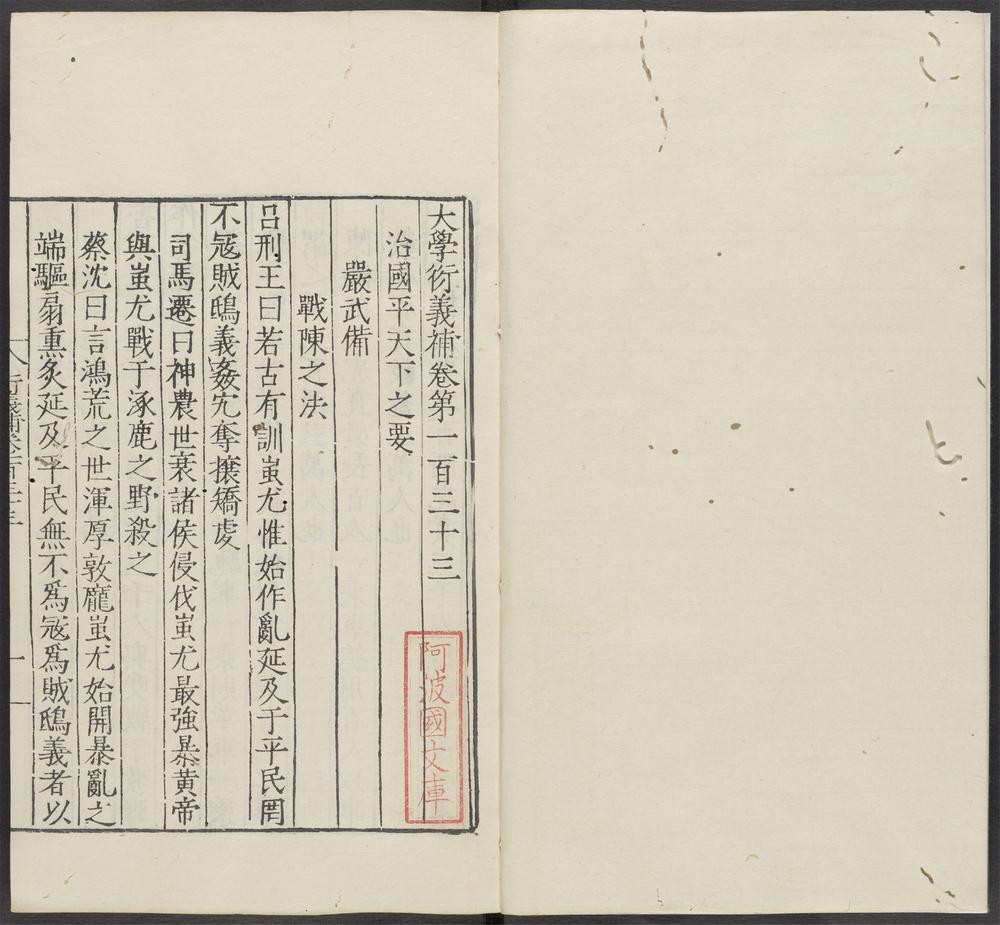 大學衍義補卷第一百三十三
治國平天下之要
嚴武備
戰陳之法
呂刑王曰若古有訓蚩尤惟始作亂延及于平民罔
不寇賊鴟義姦宄奪攘矯虔
司馬遷曰神農世衰諸侯侵伐蚩尤最強暴黃帝
與蚩尤戰于涿鹿之野殺之
蔡沈曰言鴻荒之世渾厚敦龐蚩尤始開暴亂之
端驅扇熏炙延及平民無不爲寇爲賊鴟義者以
阿波國文庫